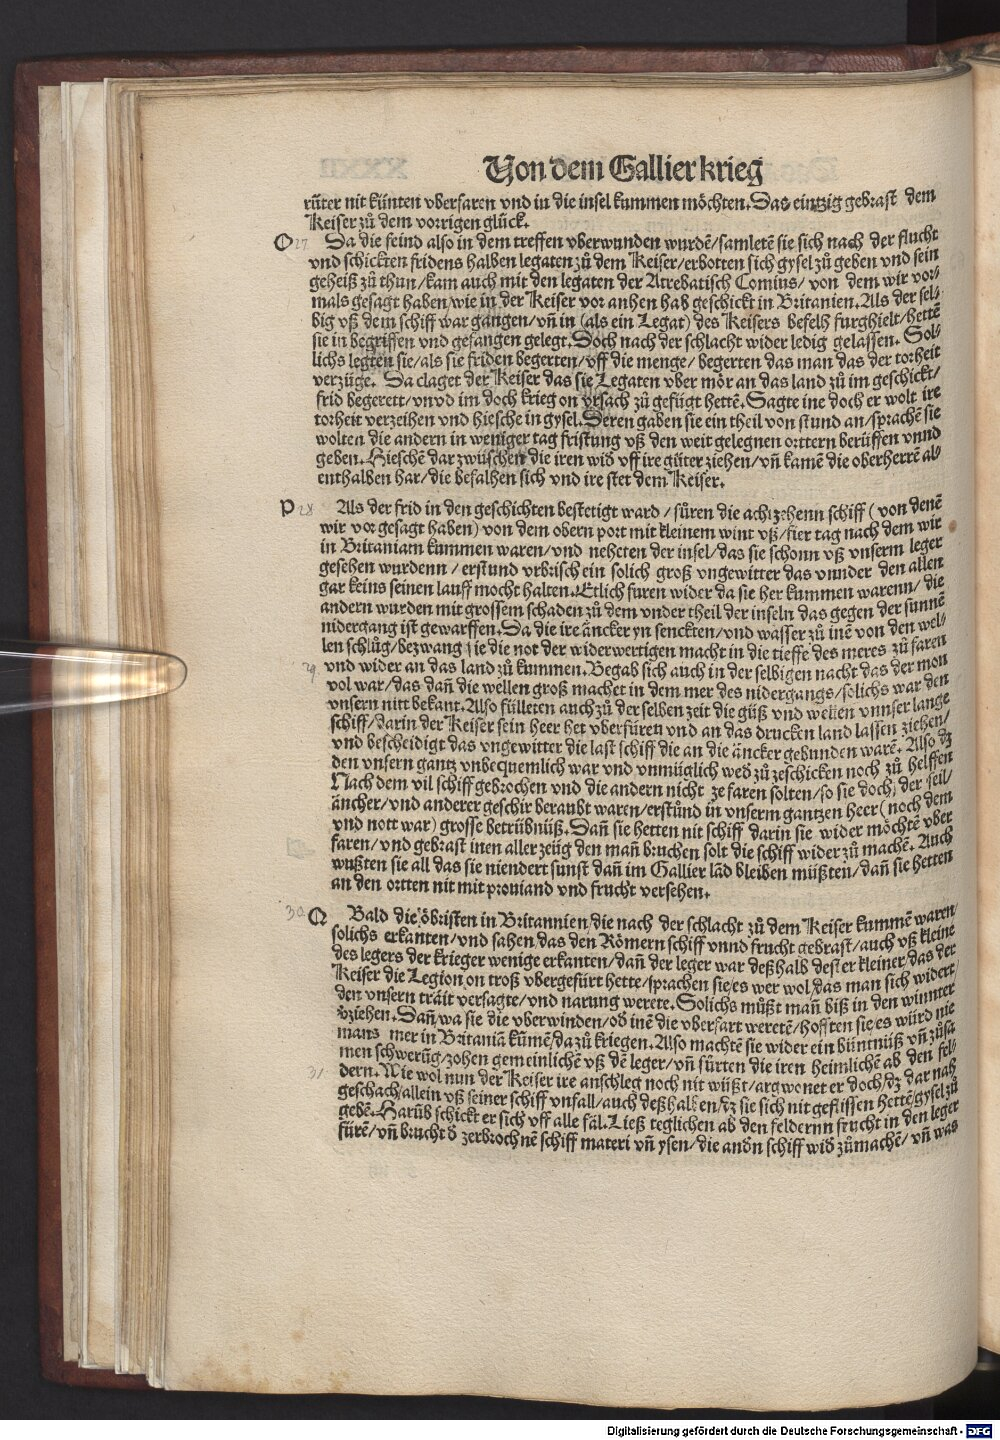 Von dem Gallier krieg
rüter nit künten vberfaren vnd in die insel kummen möchten. Das eintzig gebrast dem
Keiser zů dem vorrigen glück.
O 27 Da die feind also in dem treffen vberwunden wurdē/samletē sie sich nach der flucht
vnd schickten fridens halben legaten zů dem Keiser/erbotten sich gysel zů geben vnd sein
geheiß zů thun/kam auch mit den legaten der Atrebatisch Comius/ von dem wir vor-
mals gesagt haben/wie in der Keiser vor anhen hab geschickt in Britanien. Als der sel-
big vß dem schiff war gangen/vñ in (als ein Legat) des Keisers befelh furghielt/hettē
sie in begriffen vnd gefangen gelegt. Doch nach der schlacht wider ledig gelassen. Sol-
lichs legten sie/als sie friden begerten/vff die menge/ begerten das man das der torheit
verzüge. Da claget der Keiser das sie Legaten vber mör an das land zů im geschickt/
frid begerett/vnvd im doch krieg on vrsach zů gefügt hettē. Sagte ine doch er wolt ire
torheit verzeihen vnd hiesche in gysel. Deren gaben sie ein theil von stund an/sprachē sie
wolten die andern in weniger tag fristung vß den weit gelegnen orttern berüffen vnnd
geben. Hieschē dar zwüschen die iren wid vff ire güter ziehen/vñ kamē die oberherrē al-
enthalben har/die befalhen sich vnd ire stet dem Keiser.
P 28 Als der frid in den geschichten bestetigt ward / fůren die achtzehenn schiff (von denē
wir vor gesagt haben) von dem obern port mit kleinem wint vß/fier tag nach dem wir
in Britaniam kummen waren/vnd neheten der insel/das sie schonn vß vnserm leger
gesehen wurdenn/ erstund vrbrisch ein solich groß vngewitter das vnnder den allen
gar keins seinen lauff mocht halten. Etlich furen wider da sie her kummen warenn/ die
andern wurden mit grossem schaden zů dem vnder theil der inseln das gegen der sunnē
nidergang ist geworffen. Da die ire äncker yn senckten/vnd wasser zů inē von den wel-
len schlůg/bezwang sie die not der widerwertigen macht in die tieffe des meres zů faren
29 vnd wider an das land zů kummen. Begab sich auch in der selbigen nacht das der mon
vol war/das dañ die wellen groß machet in dem mer des nidergangs/solichs war den
vnsern nitt bekant. Also fülleten auch zů der selben zeit die güß vnd wellen vnnser lange
schiff/darin der Keiser sein heer het vberfüren vnd an das drucken land lassen ziehen/
vnd bescheidigt das vngewitter die last schiff die an die äncker gebunden warē. Also dz
den vnsern gantz vnbequemlich war vnd vnmüglich wed zů zeschicken noch zů helffen
Nach dem vil schiff gebrochen vnd die andern nicht ze faren solten/so sie doch der seil/
äncher/vnd anderer geschir beraubt waren/erstůnd in vnserm gantzen heer (noch dem
vnd nott war) grosse betrübnüß. Dañ sie hetten nit schiff darin sie wider möchtē vber
faren/vnd gebrast inen aller zeüg den mañ bruchen solt die schiff wider zů machē. Auch
wußten sie all das sie niendert sunst dañ im Gallier lād bleiben müßten/dañ sie hetten
an den ortten nit mit prouiand vnd frucht versehen.
30 Q Bald die öbristen in Britannien/die nach der schlacht zů dem Keiser kummē waren/
solichs erkanten/vnd sahen das den Römern schiff vnnd frucht gebrast/auch vß kleine
des legers der krieger wenige erkanten/dañ der leger war deßhalb dester kleiner/das der
Keiser die Legion on troß vbergefürt hette/sprachen sie/es wer wol das man sich widert/
den vnsern träit versagte/vnd narung werete. Solichs můßt mañ biß in den wintter
vziehen. Dañ/wa sie die vberwinden/od inē die vberfart weretē/hofften sie/es würd nie
mans mer in Britaniā kūmē/da zů kriegen. Also machtē sie wider ein büntnüß vñ zůsa
men schwerūg/zohen gemeinlichē vß dē leger/vñ fürten die iren heimlichē ab den fel-
31 dern. Wie wol nun der Keiser ire anschleg noch nit wüßt/argwonet er doch/dz dar nah
geschach/allein vß seiner schiff vnfall/auch deßhalben/dz sie sich nit geflissen hettē/gysel zů
gebē. Harüb schickt er sich vff alle fäl. Ließ teglichen ab den feldernn frucht in den leger
fürē/vñ brucht d zerbrochnē schiff materi vñ ysen/die andn schiff wid zůmachē/ vñ was
Digitalisierung gefördert durch die Deutsche Forschungsgemeinschaft - DFG